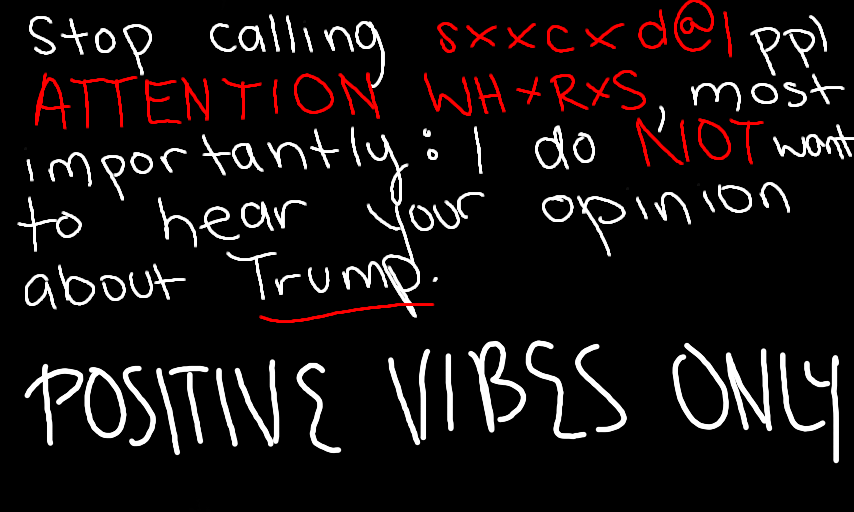 Stop calling sxxcxd@l ppl
ATTENTION WHXRXS, most
importantly: I do NOT want
to hear your opinion
about Trump.
POSITIVE VIBES ONLY